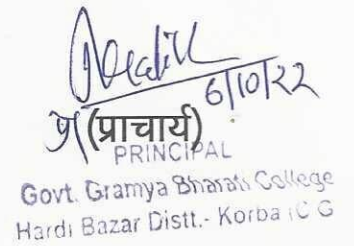 6/10/22
(प्राचार्य)
PRINCIPAL
Govt. Gramya Bharati College
Hardi Bazar Distt.- Korba (C G